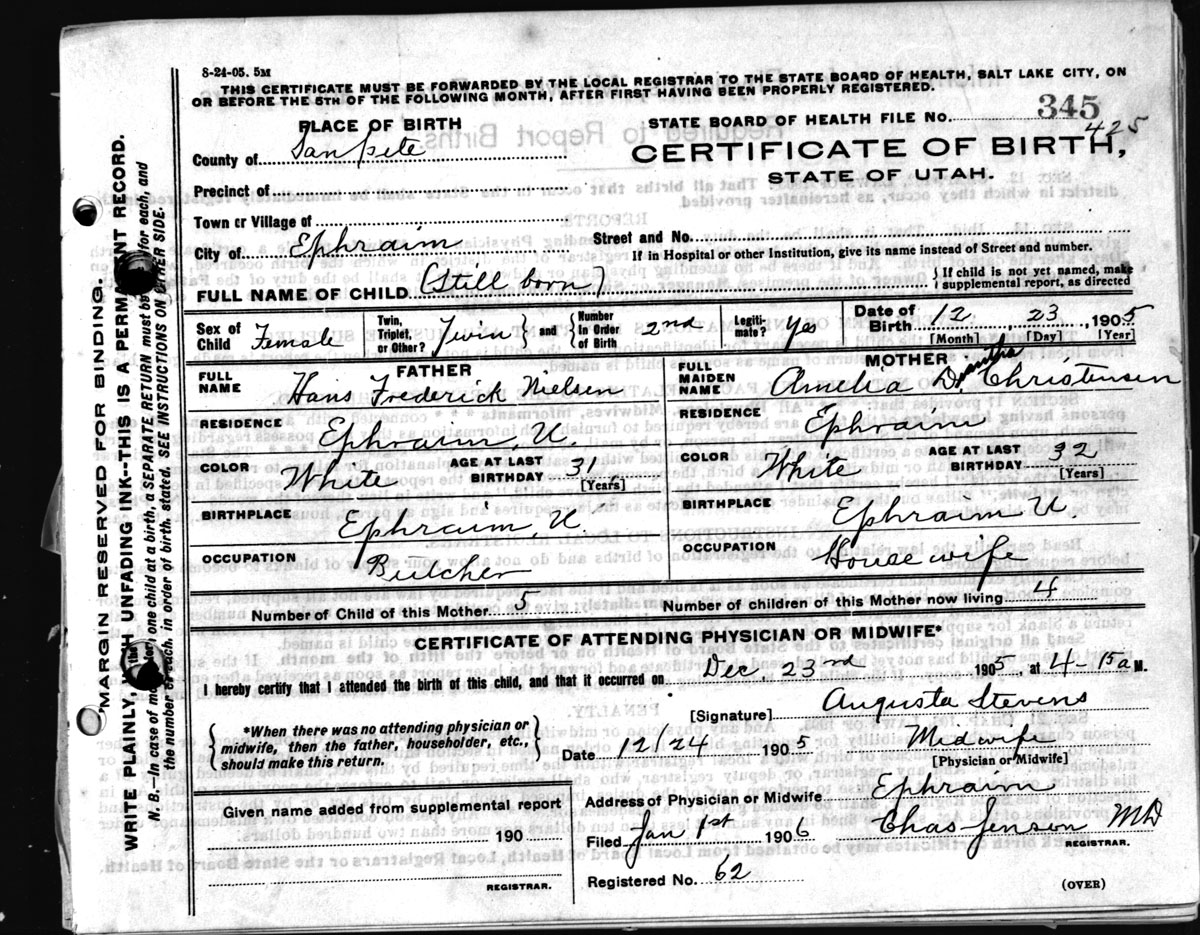 8-24-05. 5M
THIS CERTIFICATE MUST BE FORWARDED BY THE LOCAL REGISTRAR TO THE STATE BOARD OF HEALTH, SALT LAKE CITY, ON
OR BEFORE THE 5TH OF THE FOLLOWING MONTH, AFTER FIRST HAVING BEEN PROPERLY REGISTERED.
PLACE OF BIRTH
County of Sanpete
Precinct of
Town or Village of
City of Ephraim
STATE BOARD OF HEALTH FILE NO. 345
425
CERTIFICATE OF BIRTH,
STATE OF UTAH.
Street and No.
If in Hospital or other Institution, give its name instead of Street and number.
FULL NAME OF CHILD (Still born)
{ If child is not yet named, make
supplemental report, as directed
Sex of Child Female
Twin, Triplet, or Other? Twin } and { Number In Order of Birth 2nd
Legiti-mate? Yes
Date of Birth 12, 23, 1905
[Month] [Day] [Year]
FATHER
FULL NAME Hans Frederick Nielsen
RESIDENCE Ephraim, U.
COLOR White AGE AT LAST BIRTHDAY 31 [Years]
BIRTHPLACE Ephraim, U.
OCCUPATION Butcher
MOTHER
FULL MAIDEN NAME Amelia Christensen
RESIDENCE Ephraim
COLOR White AGE AT LAST BIRTHDAY 32 [Years]
BIRTHPLACE Ephraim U.
OCCUPATION House wife
Number of Child of this Mother 5 Number of children of this Mother now living 4
CERTIFICATE OF ATTENDING PHYSICIAN OR MIDWIFE*
I hereby certify that I attended the birth of this child, and that it occurred on Dec, 23rd 1905, at 4-15 a M.
{ *When there was no attending physician or
midwife, then the father, householder, etc.,
should make this return. }
[Signature] Augusta Stevens
Date 12/24 1905 Midwife
[Physician or Midwife]
Given name added from supplemental report
190
REGISTRAR.
Address of Physician or Midwife Ephraim
Filed Jan 1st 1906 Chas Jenson MD
REGISTRAR.
Registered No. 62
(OVER)
MARGIN RESERVED FOR BINDING.
WRITE PLAINLY, WITH UNFADING INK--THIS IS A PERMANENT RECORD.
N. B.--In case of more than one child at a birth, a SEPARATE RETURN must be made for each, and
the number of each, in order of birth, stated. SEE INSTRUCTIONS ON OTHER SIDE.